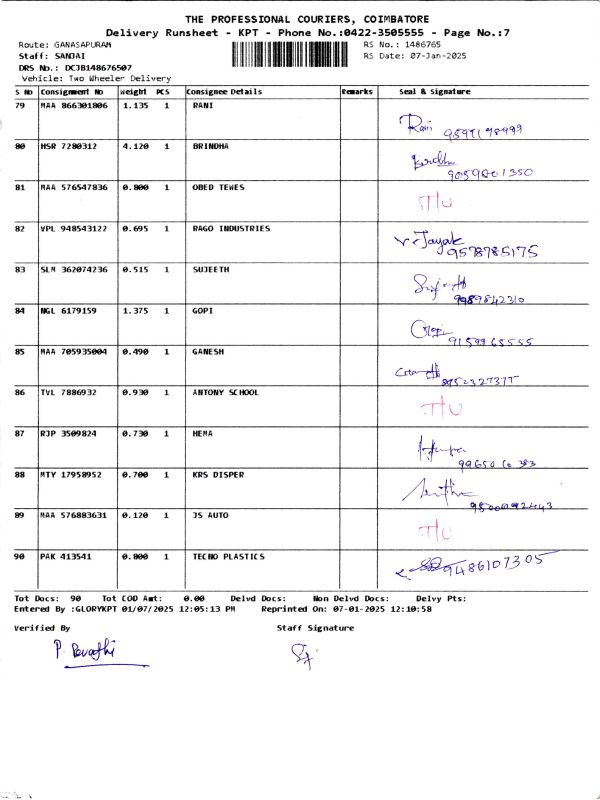 THE PROFESSIONAL COURIERS, COIMBATORE
Delivery Runsheet - KPT - Phone No.:0422-3505555 - Page No.:7
Route: GANASAPURAM RS No.: 1486765
Staff: SANJAI RS Date: 07-Jan-2025
DRS No.: DCJB148676507
Vehicle: Two Wheeler Delivery
S No Consignment No Weight PCS Consignee Details Remarks Seal & Signature
79 MAA 866301806 1.135 1 RANI
Rani
80 HSR 7280312 4.120 1 BRINDHA
9059801350
81 MAA 576547836 0.800 1 OBED TEWES
82 VPL 948543122 0.695 1 RAGO INDUSTRIES
9578785175
83 SLM 362074236 0.515 1 SUJEETH
9989842310
84 NGL 6179159 1.375 1 GOPI
Gopi
9159965555
85 MAA 705935004 0.490 1 GANESH
86 TVL 7886932 0.930 1 ANTONY SCHOOL
87 RJP 3509824 0.730 1 HEMA
88 MTY 17958952 0.700 1 KRS DISPER
89 MAA 576883631 0.120 1 JS AUTO
90 PAK 413541 0.800 1 TECNO PLASTICS
9486107305
Tot Docs: 90 Tot COD Amt: 0.00 Delvd Docs: Non Delvd Docs: Delvy Pts:
Entered By :GLORYKPT 01/07/2025 12:05:13 PM Reprinted On: 07-01-2025 12:10:58
Verified By Staff Signature